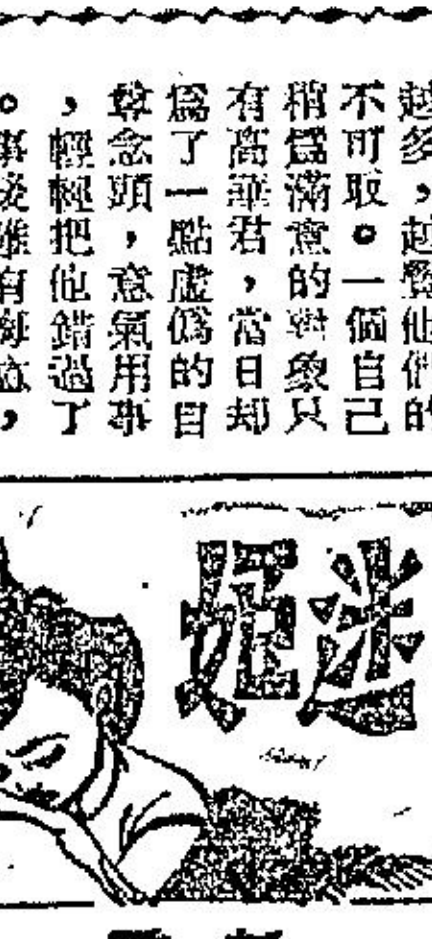 越多，越覺他們的
不可取。一個自己
稍爲滿意的對象只
有高華君，當日却
爲了一點虛僞的自
尊念頭，意氣用事
，輕輕把他錯過了
。事後雖有悔意，
迷